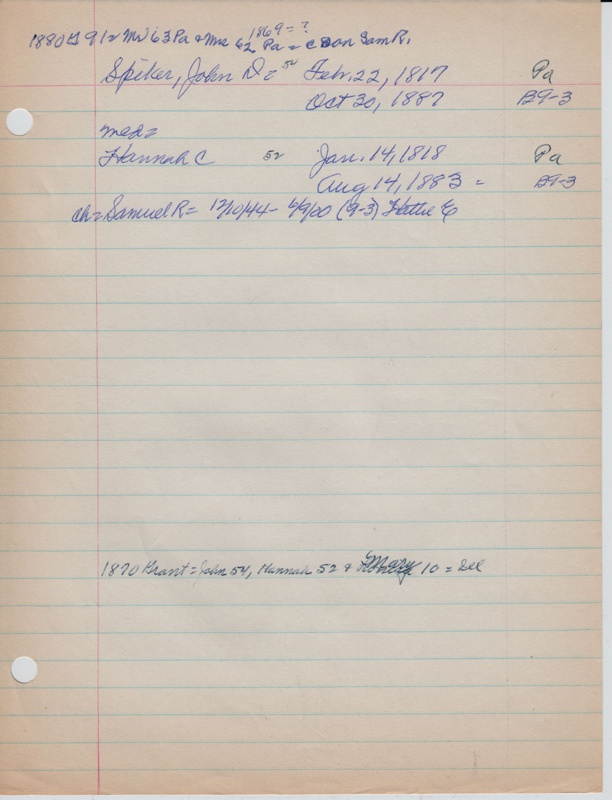 1869=?
1880 G 91= Mr 63 Pa & Mrs 62 Pa = c son Sam R.
Spiker, John D= 54 Feb. 22, 1817 Pa
Oct 30, 1887 B9-3
med=
Hannah C 52 Jan. 14, 1818 Pa
Aug 14, 1883 = B9-3
ch= Samuel R= 12/10/44 - 6/9/20 (9-3) Hattie E
1870 Grant= John 54, Hannah 52 & Mary 10 = Ill